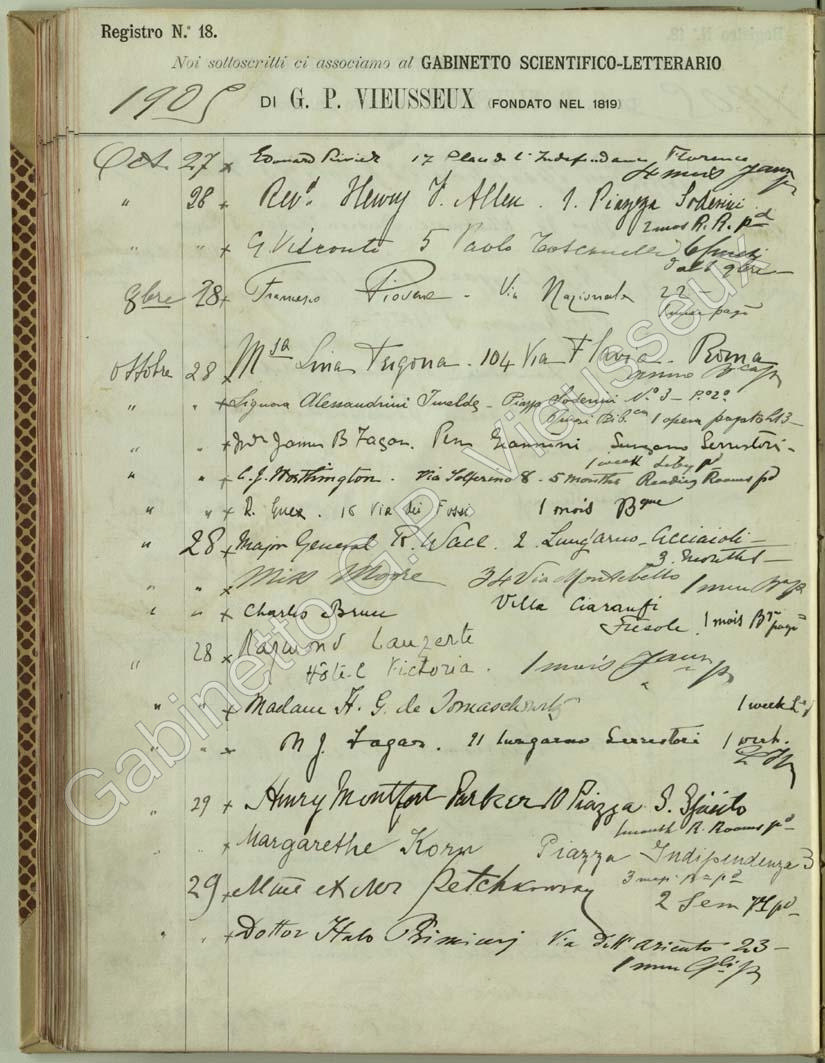 Registro N.º 18.
Noi sottoscritti ci associamo al GABINETTO SCIENTIFICO-LETTERARIO
1905
DI G. P. VIEUSSEUX (FONDATO NEL 1819)
Oct. 27 x Edouard 17 Place de l'Indépendance Florence
4 mois
" 28 x Revd. Henry Allen. 1. Piazza Soderini
2 mos R. R. pd
" " x G Visconti 5 Paolo Toscanelli 6 mesi
8bre 28 x Francesco Piovene - Via Nazionale 22 -
1 mese pag
Ottobre 28 x Msa Lina Trigona. 104 Via Flavia. Roma
" " x Signora Alessandrini Imelde - Piazza Soderini N.º 3 - Pº 2º
1 opera pagato
" " x James B Fagan. Pen Giannini Lungarno Serristori -
1 week pd
" " x C. J. Worthington. Via Solferino 8. 5 months Reading Rooms pd
" " x R. Guex. 16 Via dei Fossi 1 mois Bque
" 28 x Major General R. Wace 2. Lungarno Acciaioli -
3. months -
" " x Miss Moore 34 Via Montebello 1 mese
" " x Charles Bruce Villa Ciaranfi
Fiesole. 1 mois
" 28 x Raymond Lanzerte
Hôtel Victoria. 1 mois
" " x Madame H. G. de Tomaschowitz 1 week
" " x M J. Fagan. 21 Lungarno Serristori 1 week.
" 29 x Henry Montfort Parker 10 Piazza S. Spirito
1 month R. Rooms pd
" " x Margarethe Korn Piazza Indipendenza 3
29 x Mme et Mor Petchkowsky 2 Sem pd
" " x Dottor Italo Via dell' Ariento 23 -
1 mese
Gabinetto G.P. Vieusseux